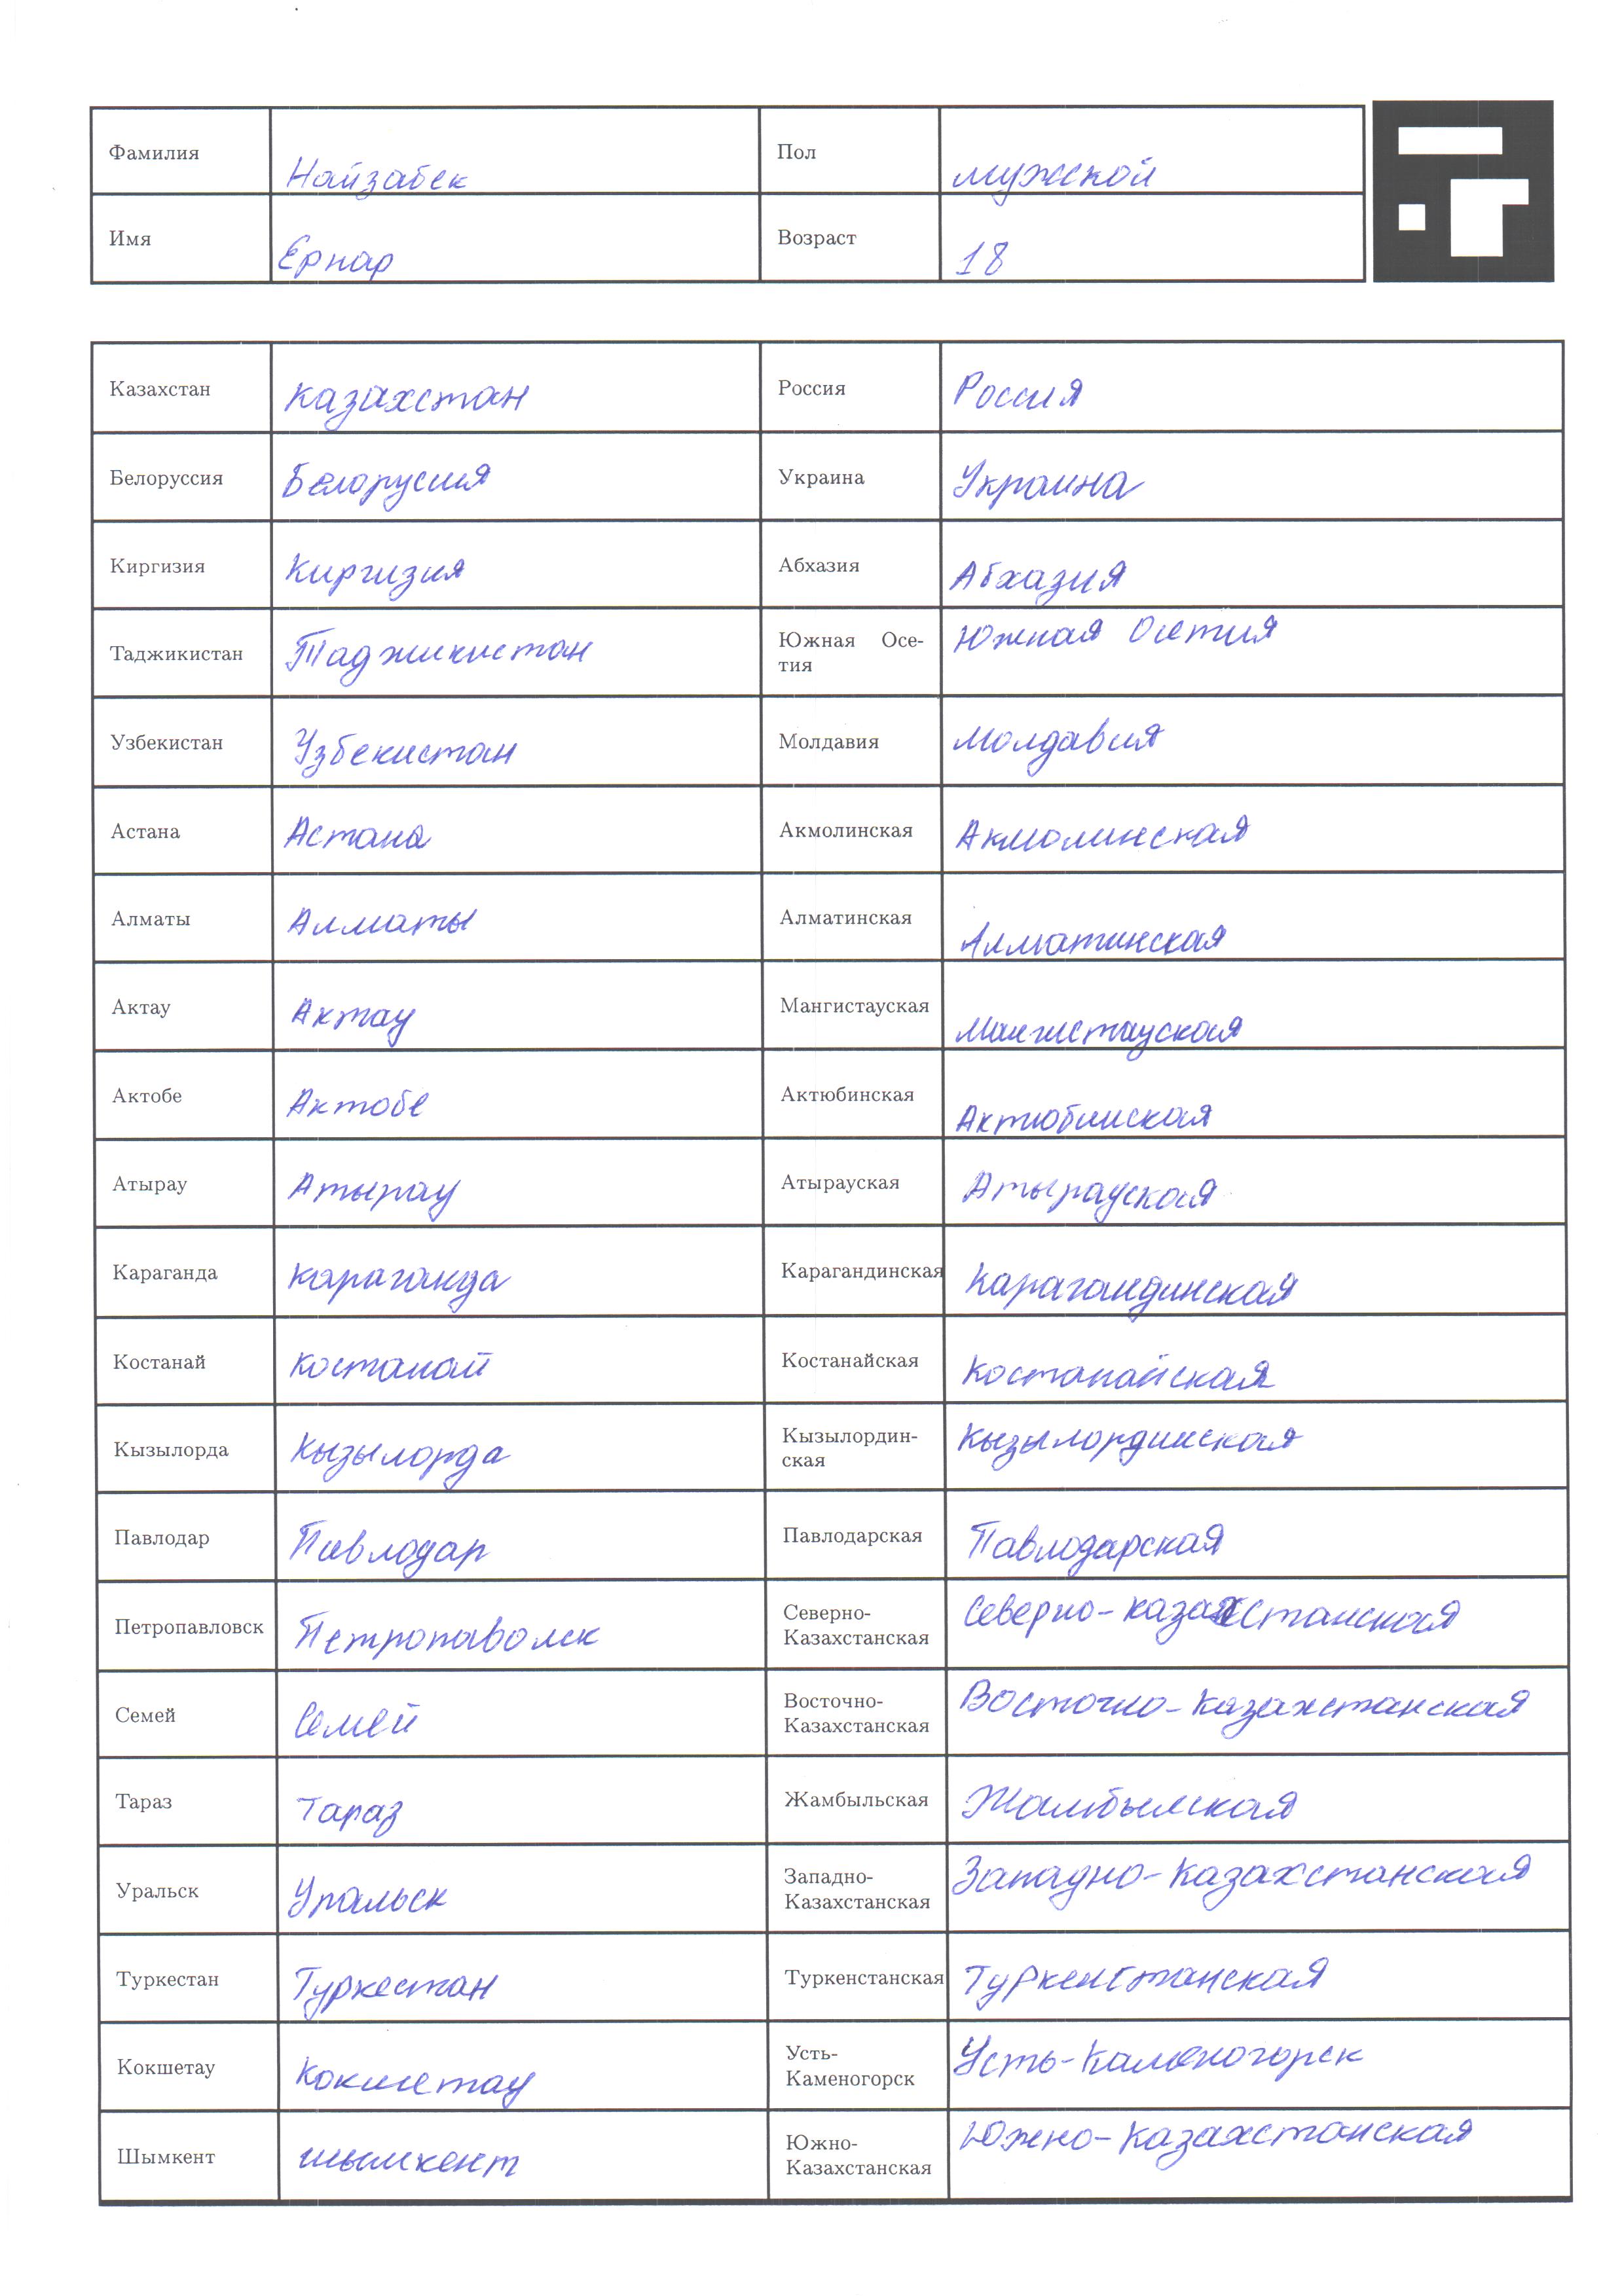 Фамилия Найзабек Пол мужской
Имя Ернар Возраст 18
Казахстан Казахстан Россия Россия
Белоруссия Белорусия Украина Украина
Киргизия Киргизия Абхазия Абхазия
Таджикистан Таджикистан Южная Осе-
тия Южная Осетия
Узбекистан Узбекистан Молдавия Молдавия
Астана Астана Акмолинская Акмолинская
Алматы Алматы Алматинская Алматинская
Актау Актау Мангистауская Мангистауская
Актобе Актобе Актюбинская Актюбинская
Атырау Атырау Атырауская Атырауская
Караганда Караганда Карагандинская Карагандинская
Костанай Костанай Костанайская Костанайская
Кызылорда Кызылорда Кызылордин-
ская Кызылординская
Павлодар Павлодар Павлодарская Павлодарская
Петропавловск Петропаволск Северно-
Казахстанская Северно-Казахстанская
Семей Семей Восточно-
Казахстанская Восточно-Казахстанская
Тараз Тараз Жамбыльская Жамбылская
Уральск Уральск Западно-
Казахстанская Западно-Казахстанская
Туркестан Туркестан Туркенстанская Туркенстанская
Кокшетау Кокшетау Усть-
Каменогорск Усть-Каменогорск
Шымкент шымкент Южно-
Казахстанская Южно-Казахстанская